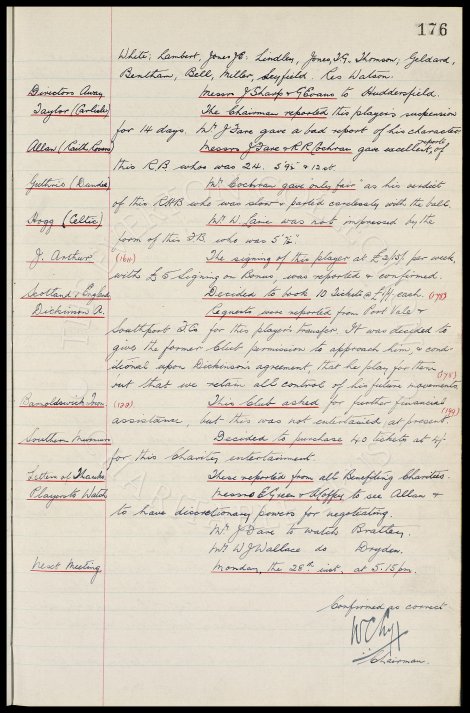 176
White; Lambert, Jones J.E. Lindley, Jones, T.G. Thomson; Geldard,
Bentham, Bell, Miller, Leyfield. Res Watson.
Directors Away Messrs J Sharp & G Evans to Huddersfield.
Taylor (Carlisle) The Chairman reported this players suspension
for 14 days. Mr J Fare gave a bad report of his character
Allan (Raith Rovers) Messrs J Fare & R R Cochran gave excellent reports of
this R.B who was 24. 5'9½" & 12 st.
Guthrie (Dundee) Mr Cochran gave only fair" as his verdict
of this RHB who was slow & parted carelessly with the ball.
Hogg (Celtic) Mr W Lane was not impressed by the
form of this F.B. who was
J. Arthur The signing of this player at per week,
with £5 Signing on Bonus was reported & confirmed.
Scotland v England Decided to book 10 tickets @ each. (178)
Dickinson A. Requests were reported from Port Vale &
Southport F.Cs for this player's transfer. It was decided to
give the former Club permission to approach him, & cond-
itional upon Dickinson's agreement, that he play for them
but that we retain all control of his future movements. (178)
Barnoldswick Town This Club asked for further financial
assistance, but this was not entertained at present.
Southern Decided to purchase 40 tickets at 4/-
for this Charity entertainment.
Letters of Thanks These reported from all Benefiting Charities.
Players to Watch Messrs E Green & to see Allan &
to have discretionary powers for negotiating.
Mr J Fare to watch Bratley.
Mr W J Wallace do Dryden.
Next Meeting Monday, the 28th inst, at 5.15 pm.
Confirmed as correct
Chairman.